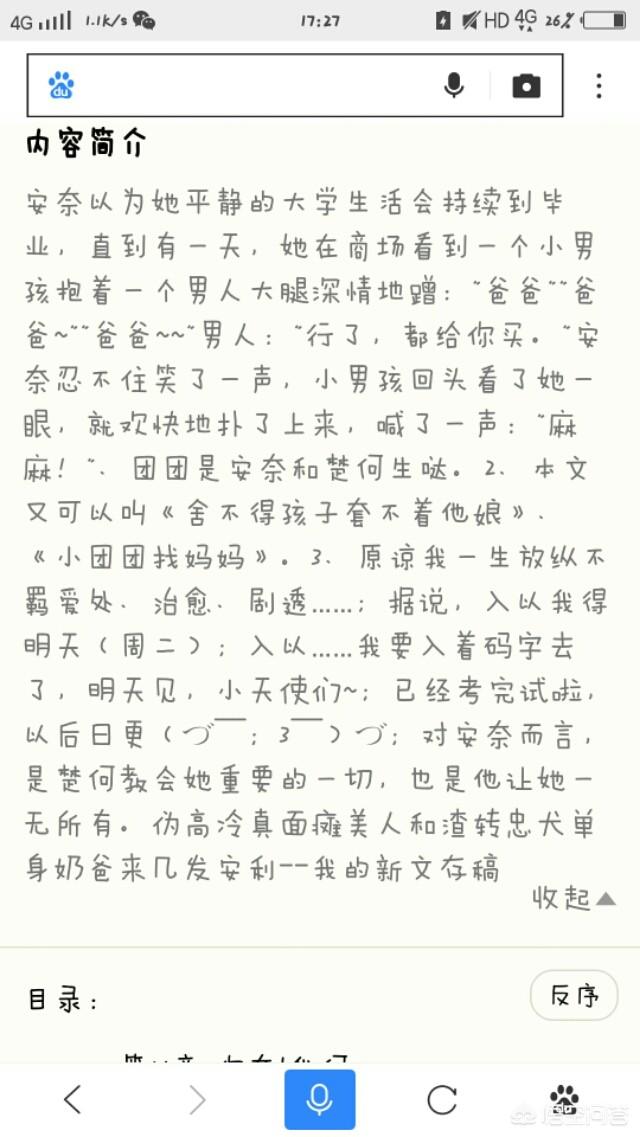 4G 1.1K/s 17:27 HD 4G 26%
du
内容简介
安奈以为她平静的大学生活会持续到毕
业，直到有一天，她在商场看到一个小男
孩抱着一个男人大腿深情地蹭：“爸爸~~爸
爸~~~爸爸~~”男人：“行了，都给你买。”安
奈忍不住笑了一声，小男孩回头看了她一
眼，就欢快地扑了上来，喊了一声：“麻
麻！”、团团是安奈和楚何生哒。2、本文
又可以叫《舍不得孩子套不着他娘》、
《小团团找妈妈》。3、原谅我一生放纵不
羁爱处、治愈、剧透……；据说，入以我得
明天（周二）；入以……我要入着码字去
了，明天见，小天使们~；已经考完试啦，
以后日更（づ￣；3￣）づ；对安奈而言，
是楚何教会她重要的一切，也是他让她一
无所有。伪高冷真面瘫美人和渣转忠犬单
身奶爸来几发安利--我的新文存稿
收起
目录：
反序
悟空问答